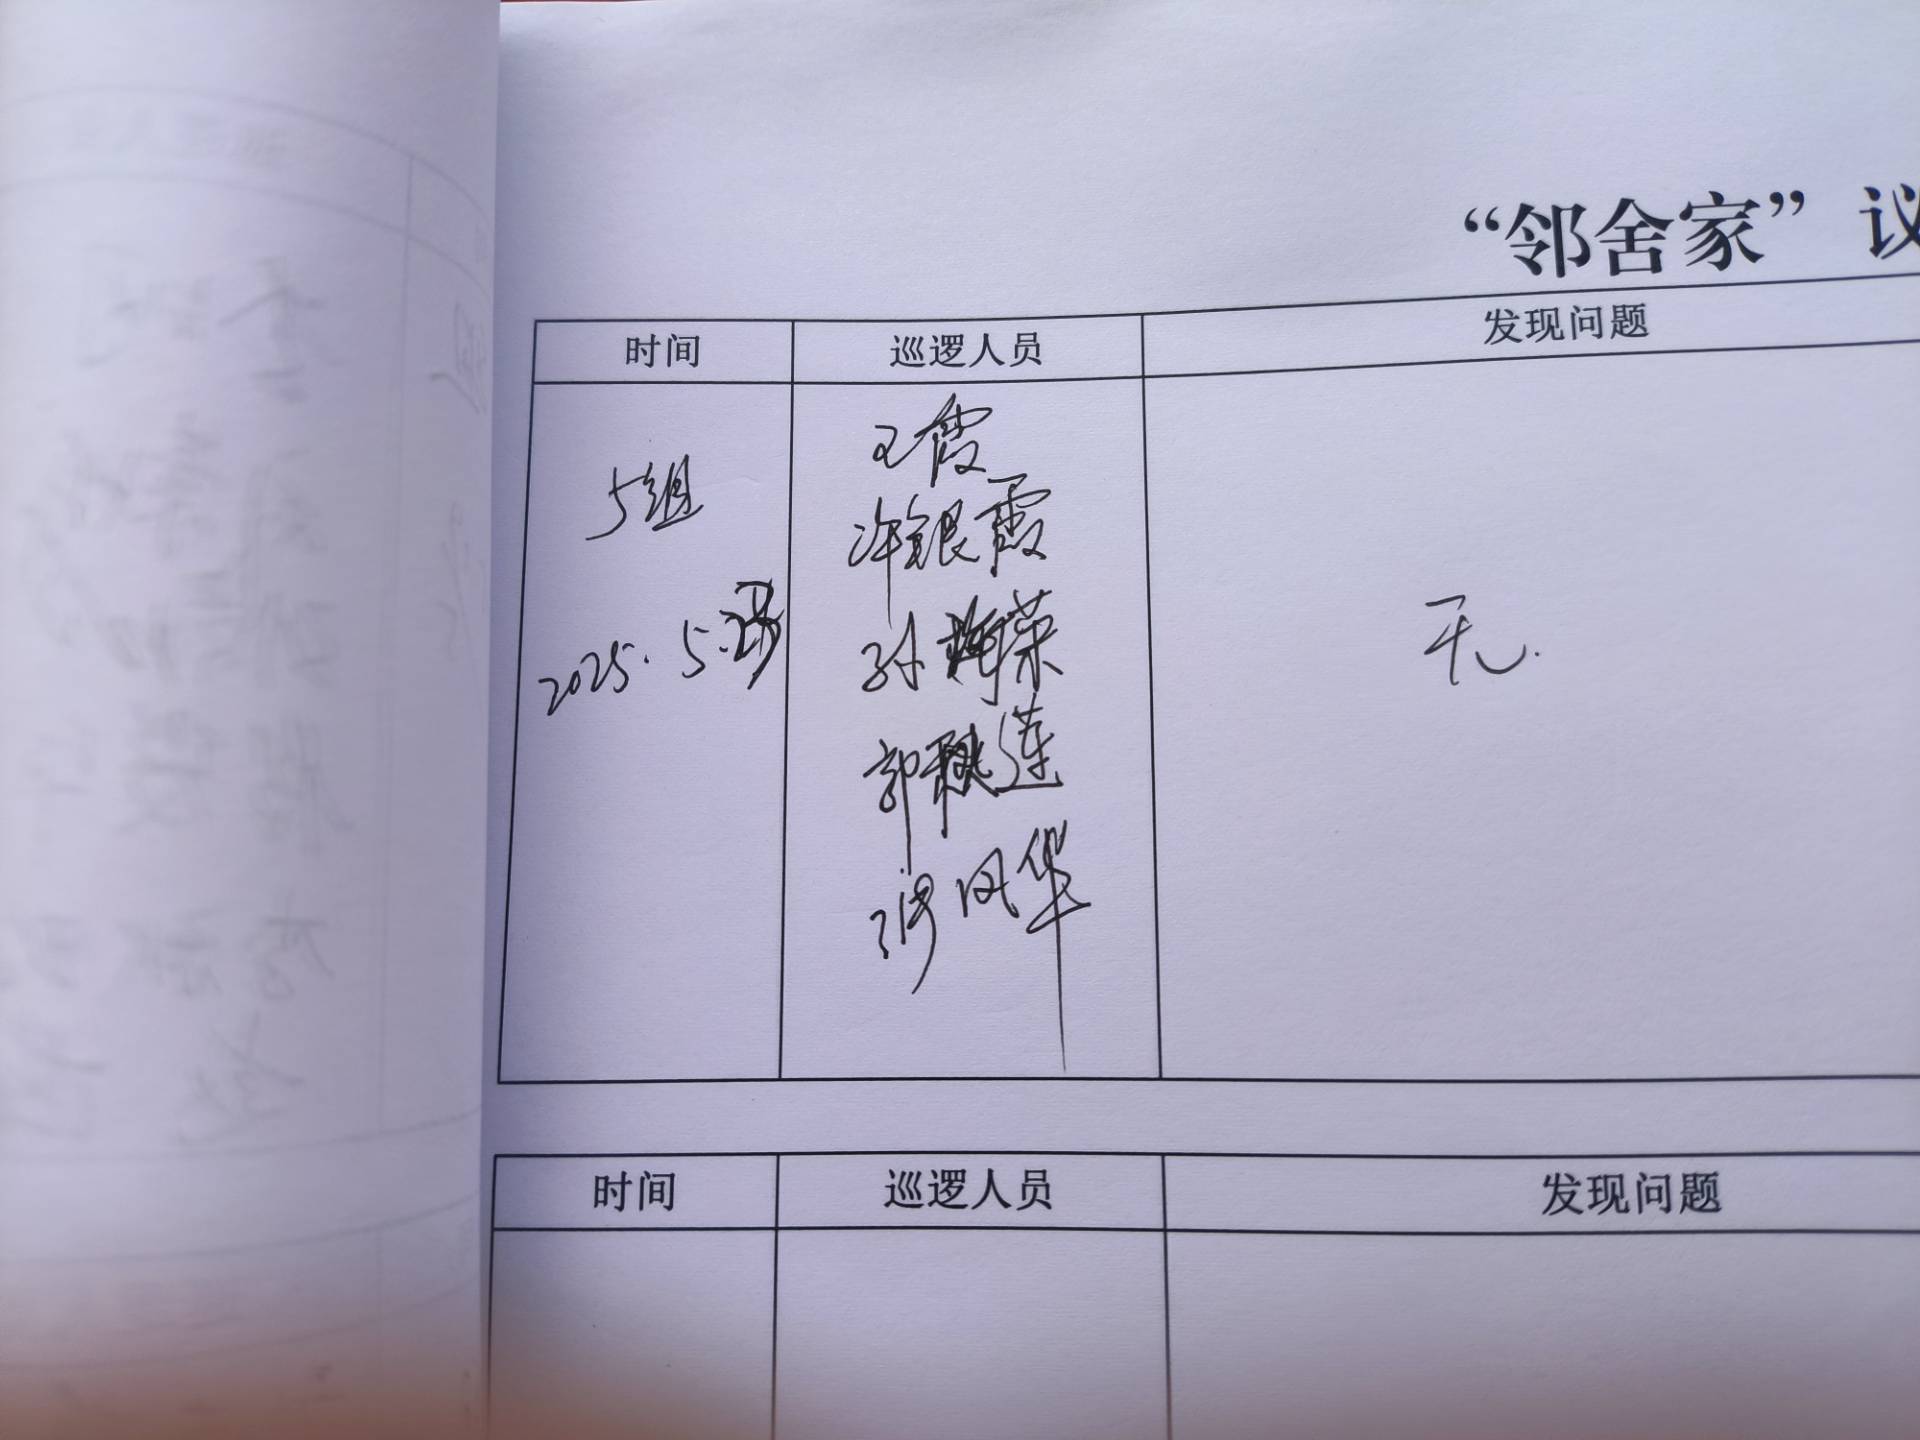 “邻舍家”议
时间 巡逻人员 发现问题
5组
2025.5.
王霞
许银霞
孙梅荣
郭桃莲
冯凤华
无.
时间 巡逻人员 发现问题